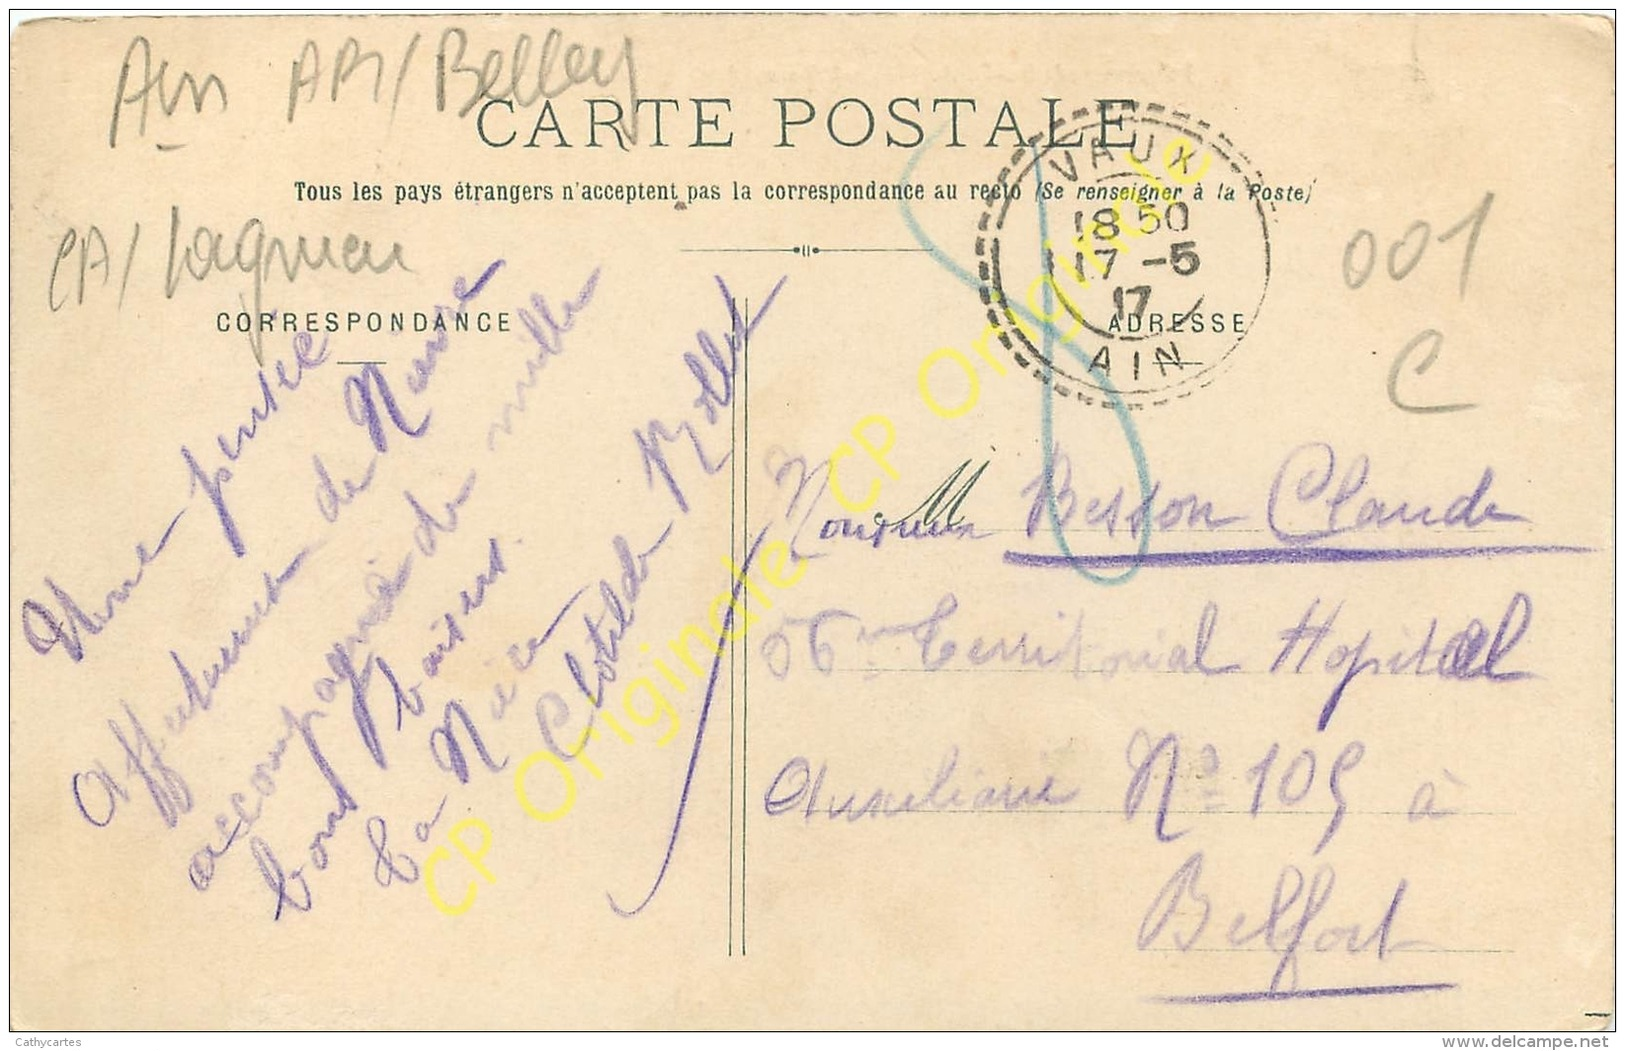 Ain ARI/Belley
CARTE POSTALE
Tous les pays étrangers n'acceptent pas la correspondance au recto (Se renseigner à la Poste)
CA/Lagnieu
CORRESPONDANCE
ADRESSE
VAUX
18 50
17 -5
17
AIN
001
C
Une pensée
affectueuse de Nièce
accompagné de mille
bons baisers.
La Nièce
Clotilde Rollet
Monsieur Besson Claude
56e Territorial Hopital
Auxiliaire No 105 à
Belfort
CP Originale CP Originale CP Originale
Cathycartes
www.delcampe.net